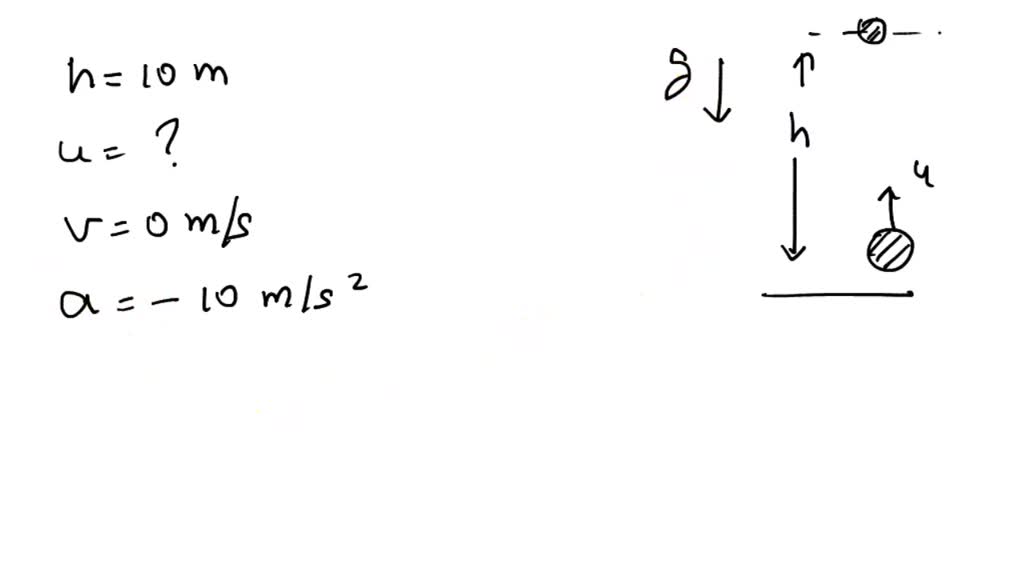 h = 10 m
u = ?
v = 0 m/s
a = - 10 m/s²
g
h
u